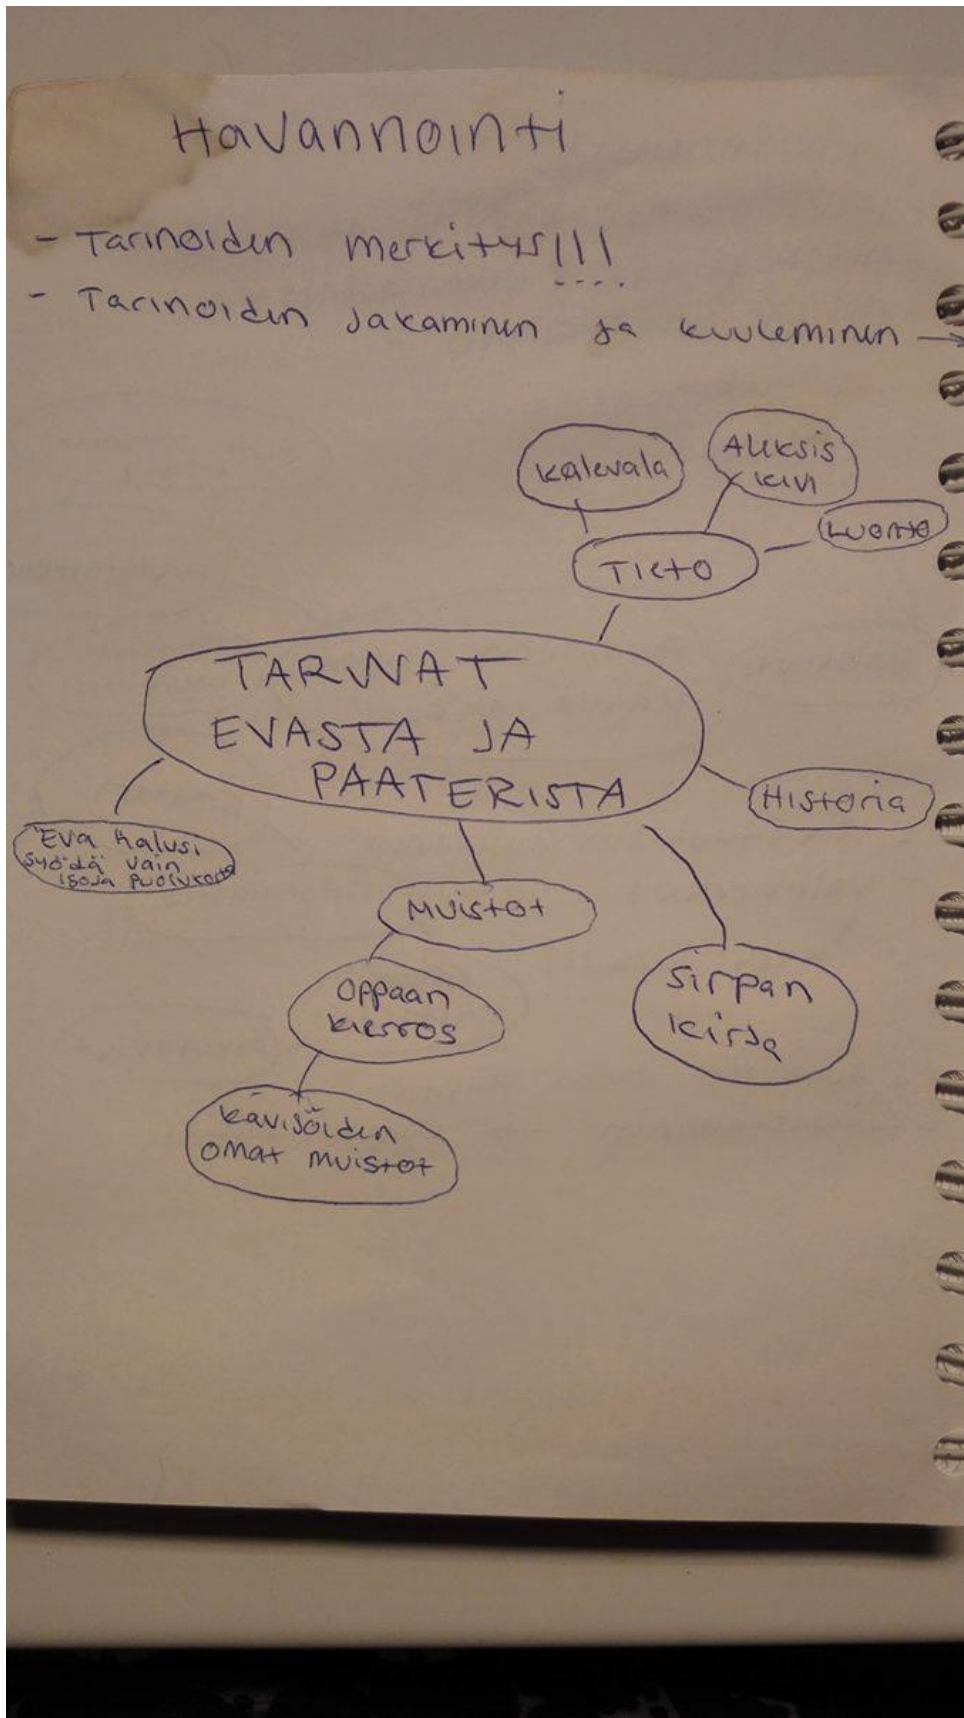 Havannointi
- Tarinoiden merkitys!!!
- Tarinoiden jakaminen ja kuuleminen →
Kalevala
Aleksis
Kivi
Luonto
Tieto
TARINAT
EVASTA JA
PAATERISTA
Historia
Eva halusi
syödä vain
isoja
Muistot
Oppaan
kierros
Sirpan
kirja
Kävijöiden
omat muistot